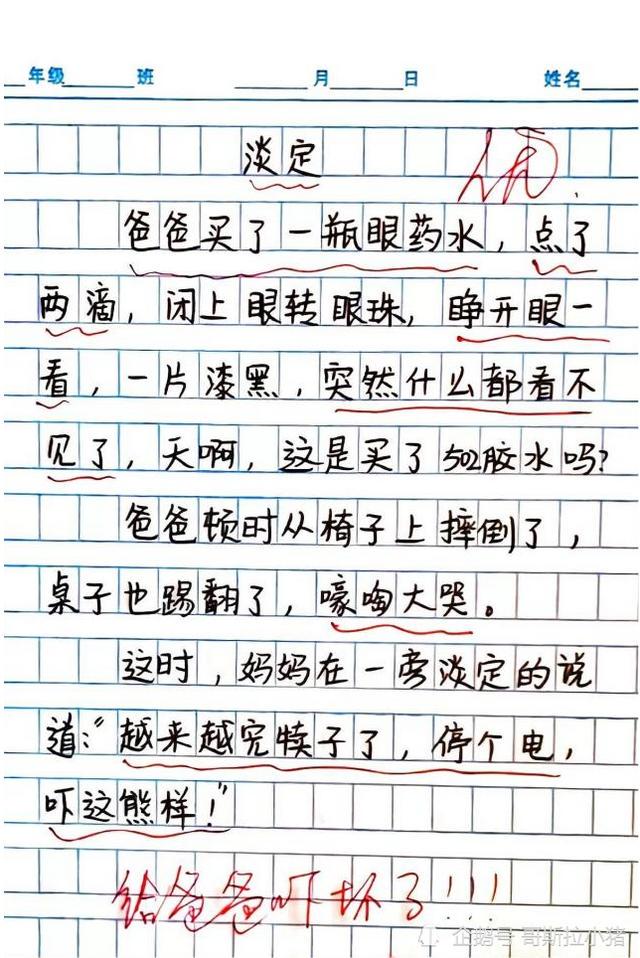 年级 班 月 日 姓名
淡定 优
爸爸买了一瓶眼药水，点了
两滴，闭上眼转眼珠，睁开眼一
看，一片漆黑，突然什么都看不
见了，天啊，这是买了502胶水吗？
爸爸顿时从椅子上摔倒了，
桌子也踢翻了，嚎啕大哭。
这时，妈妈在一旁淡定的说
道：“越来越完犊子了，停个电，
吓这熊样！”
给爸爸吓坏了!!!
企鹅号 哥斯拉小猪